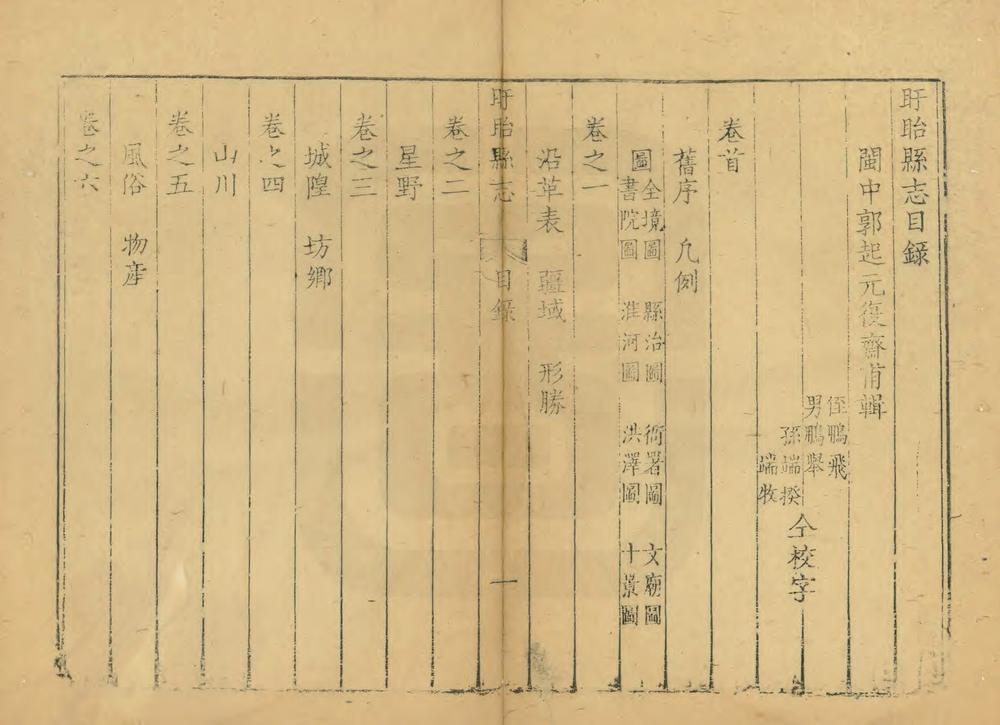 盱眙縣志目錄
閩中郭起元復齋甫輯
侄鵬飛
男鵬舉
孫端揆
端牧
仝校字
卷首
舊序 凡例
圖
全境圖 縣治圖 衙署圖 文廟圖
書院圖 淮河圖 洪澤圖 十景圖
卷之一
沿革表 疆域 形勝
盱眙縣志 目錄 一
卷之二
星野
卷之三
城隍 坊鄉
卷之四
山川
卷之五
風俗 物產
卷之六